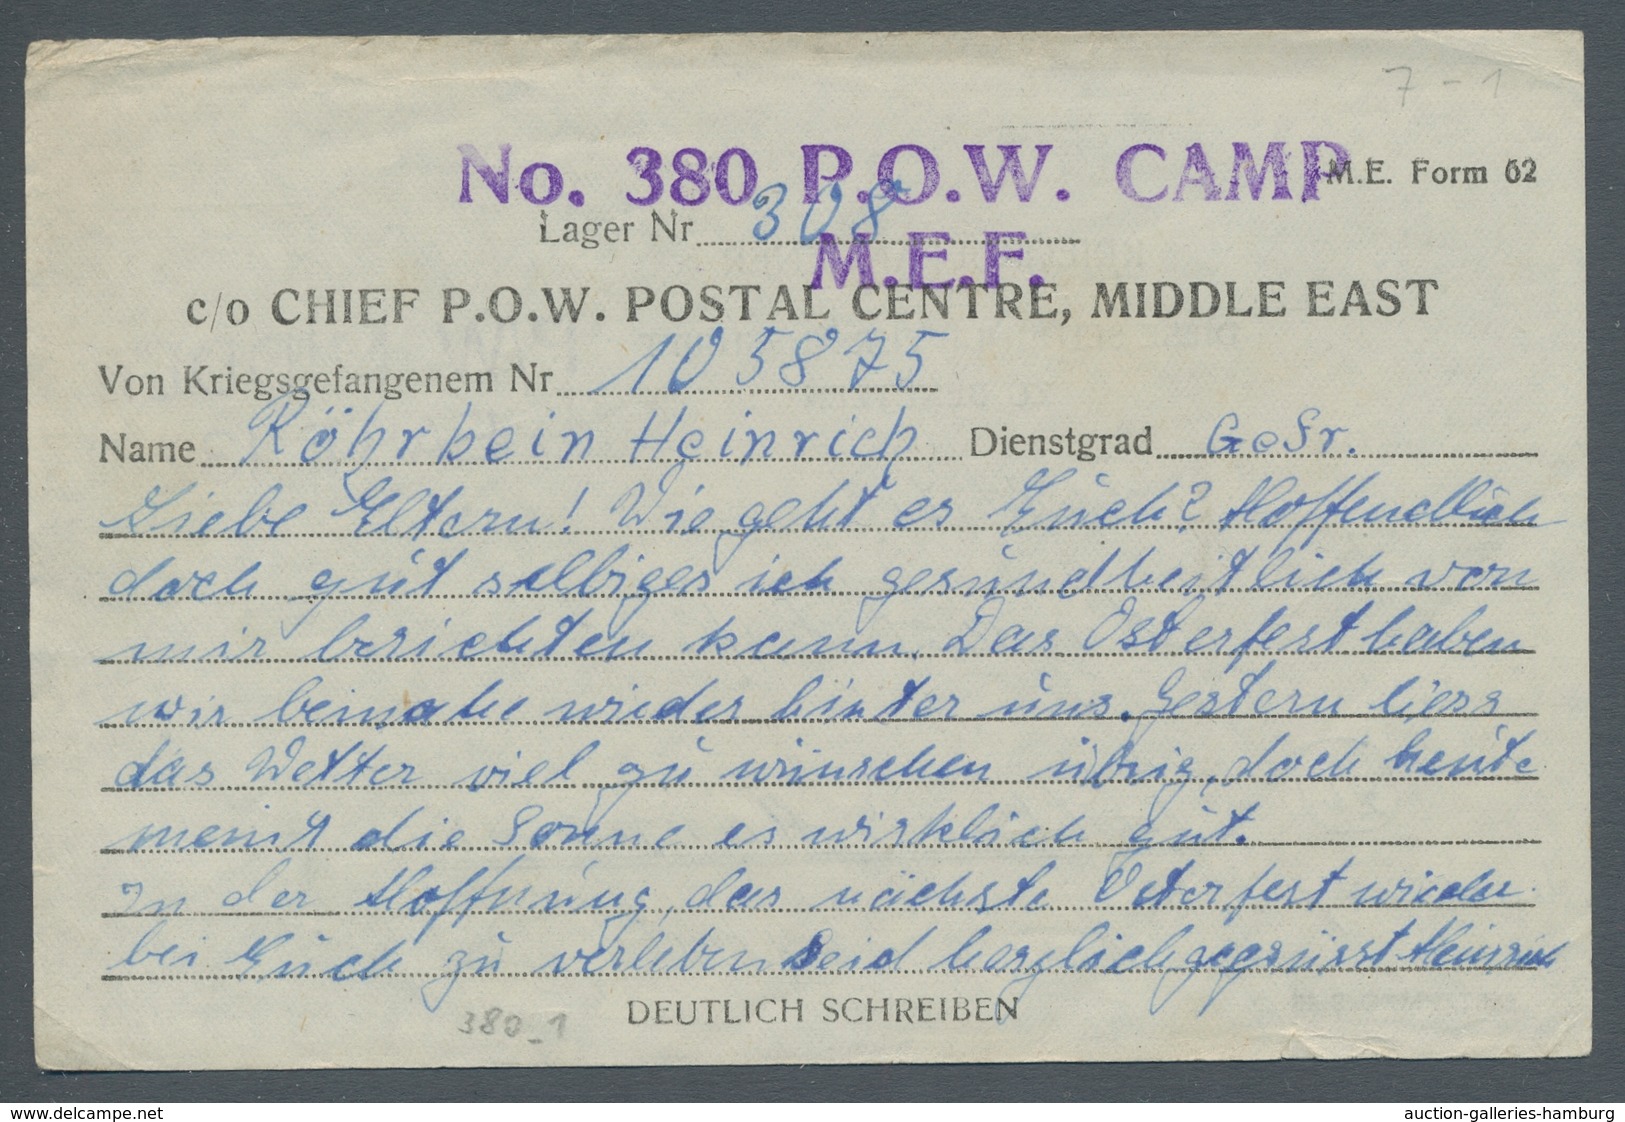 7 - 1
No. 380 P.O.W. CAMP
M.E. Form 62
Lager Nr 308
M.E.F.
c/o CHIEF P.O.W. POSTAL CENTRE, MIDDLE EAST
Von Kriegsgefangenem Nr 105875
Name Röhrbein Heinrich Dienstgrad Gefr.
Liebe Eltern! Wie geht es Euch? Hoffendlich
doch gut selbiges ich gesundheitlich von
mir berichten kann. Das Osterfest haben
wir beinahe wieder hinter uns. Gestern liess
das Wetter viel zu wünschen übrig, doch heute
meint die Sonne es wirklich gut.
In der Hoffnung, das nächste Osterfest wieder
bei Euch zu verleben Seid herzlich gegrüsst Heinrich
DEUTLICH SCHREIBEN
380_1
www.delcampe.net
auction-galleries-hamburg